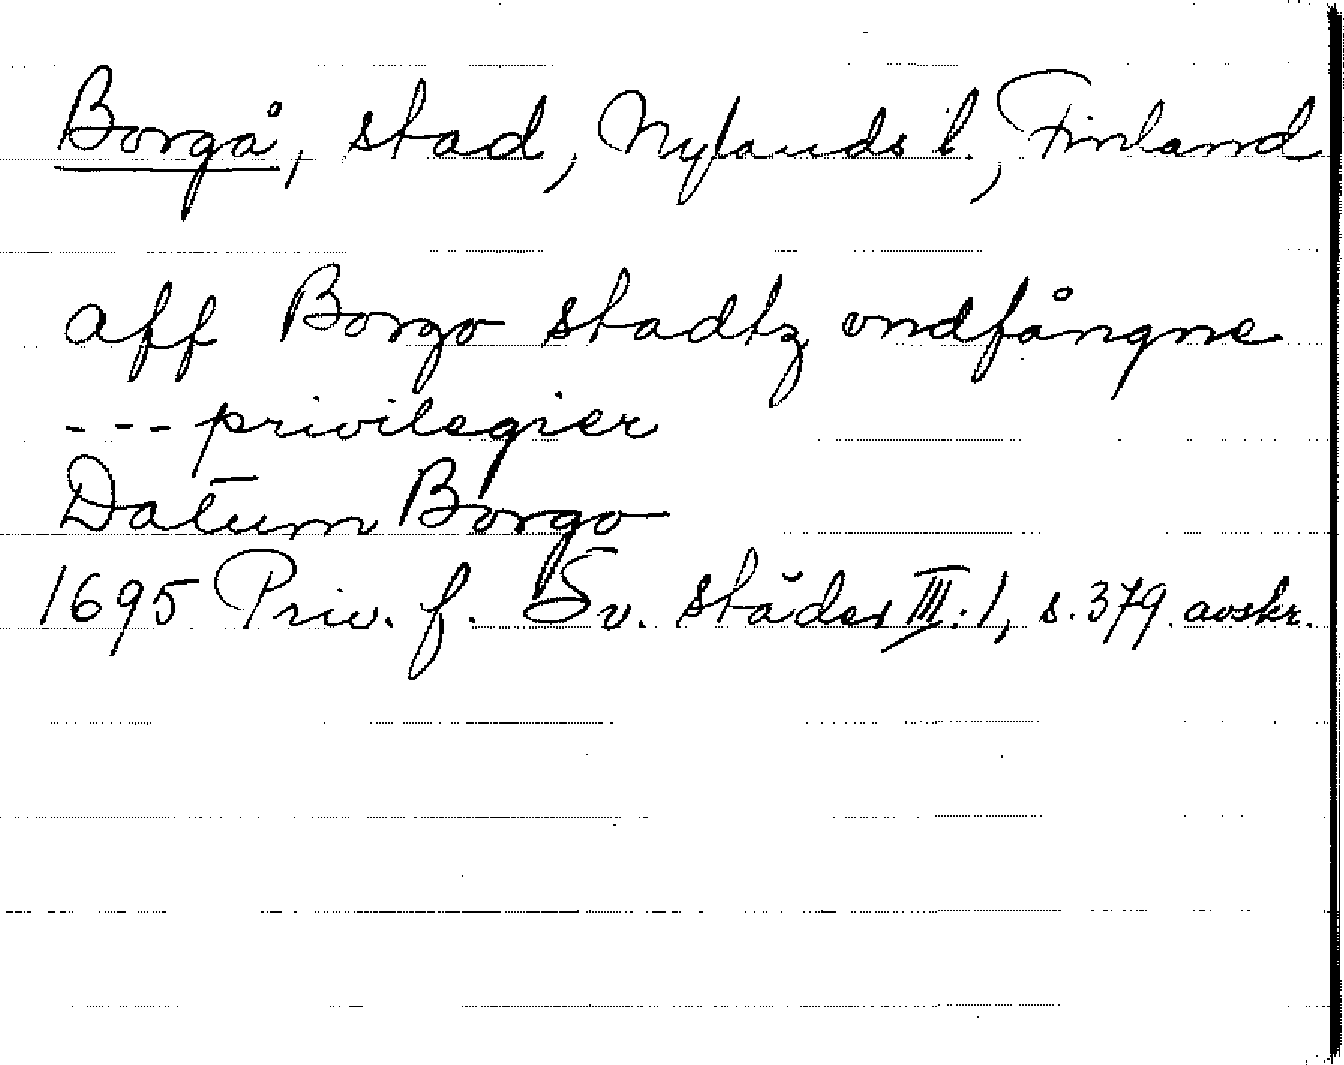 Borgå, stad, Nylands l., Finland
aff Borgo stadtz vndfångne
--- privilegier
Datum Borgo
1695 Priv. f. Sv. städer III:1, s. 379 avskr.